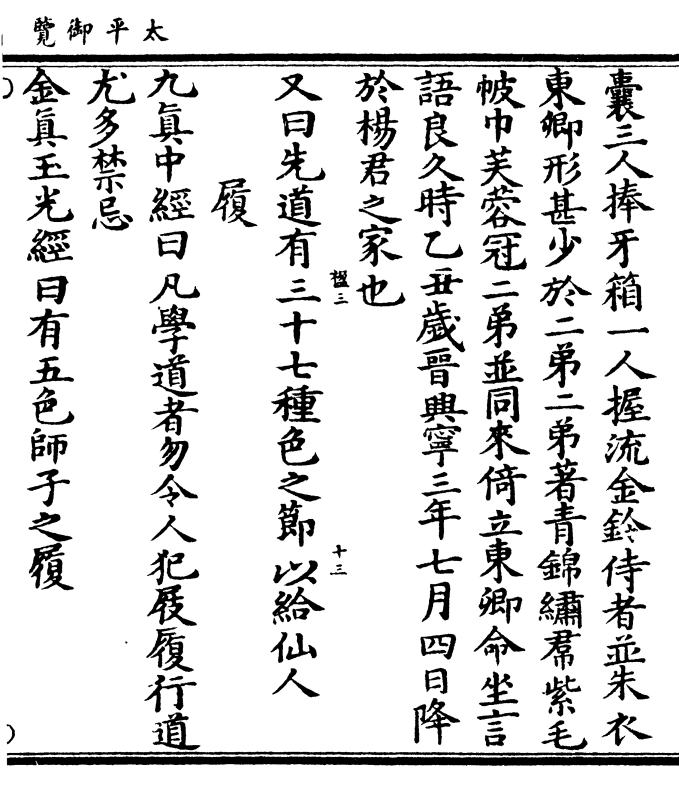 太平御覽
囊三人捧牙箱一人握流金鈴侍者並朱衣
東卿形甚少於二弟二弟著青錦繡帬紫毛
帔巾芙蓉冠二弟並同來倚立東卿命坐言
語良久時乙丑歲晉興寧三年七月四日降
於楊君之家也
又曰先道有三十七種色之節以給仙人
楹三
十三
履
九真中經曰凡學道者勿令人犯屐履行道
尤多禁忌
金真玉光經曰有五色師子之履